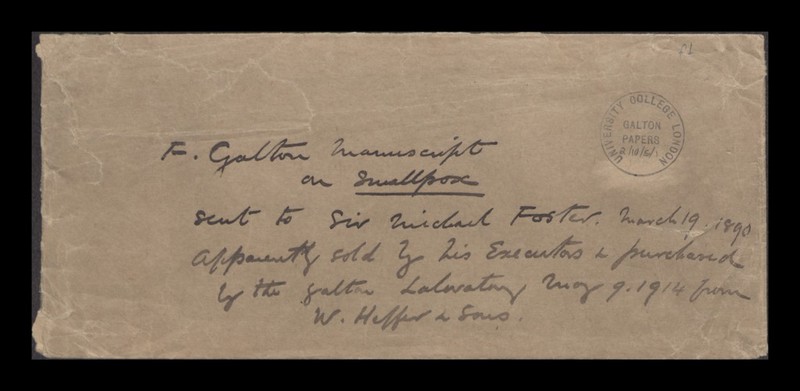 UNIVERSITY COLLEGE LONDON
GALTON
PAPERS
F. Galton Manuscript
on Smallpox
sent to Sir Michael Foster. March 19. 1890
Apparently sold by his Executors & purchased
by the Galton Laboratory May 9. 1914 from
W. Heffer & Sons.